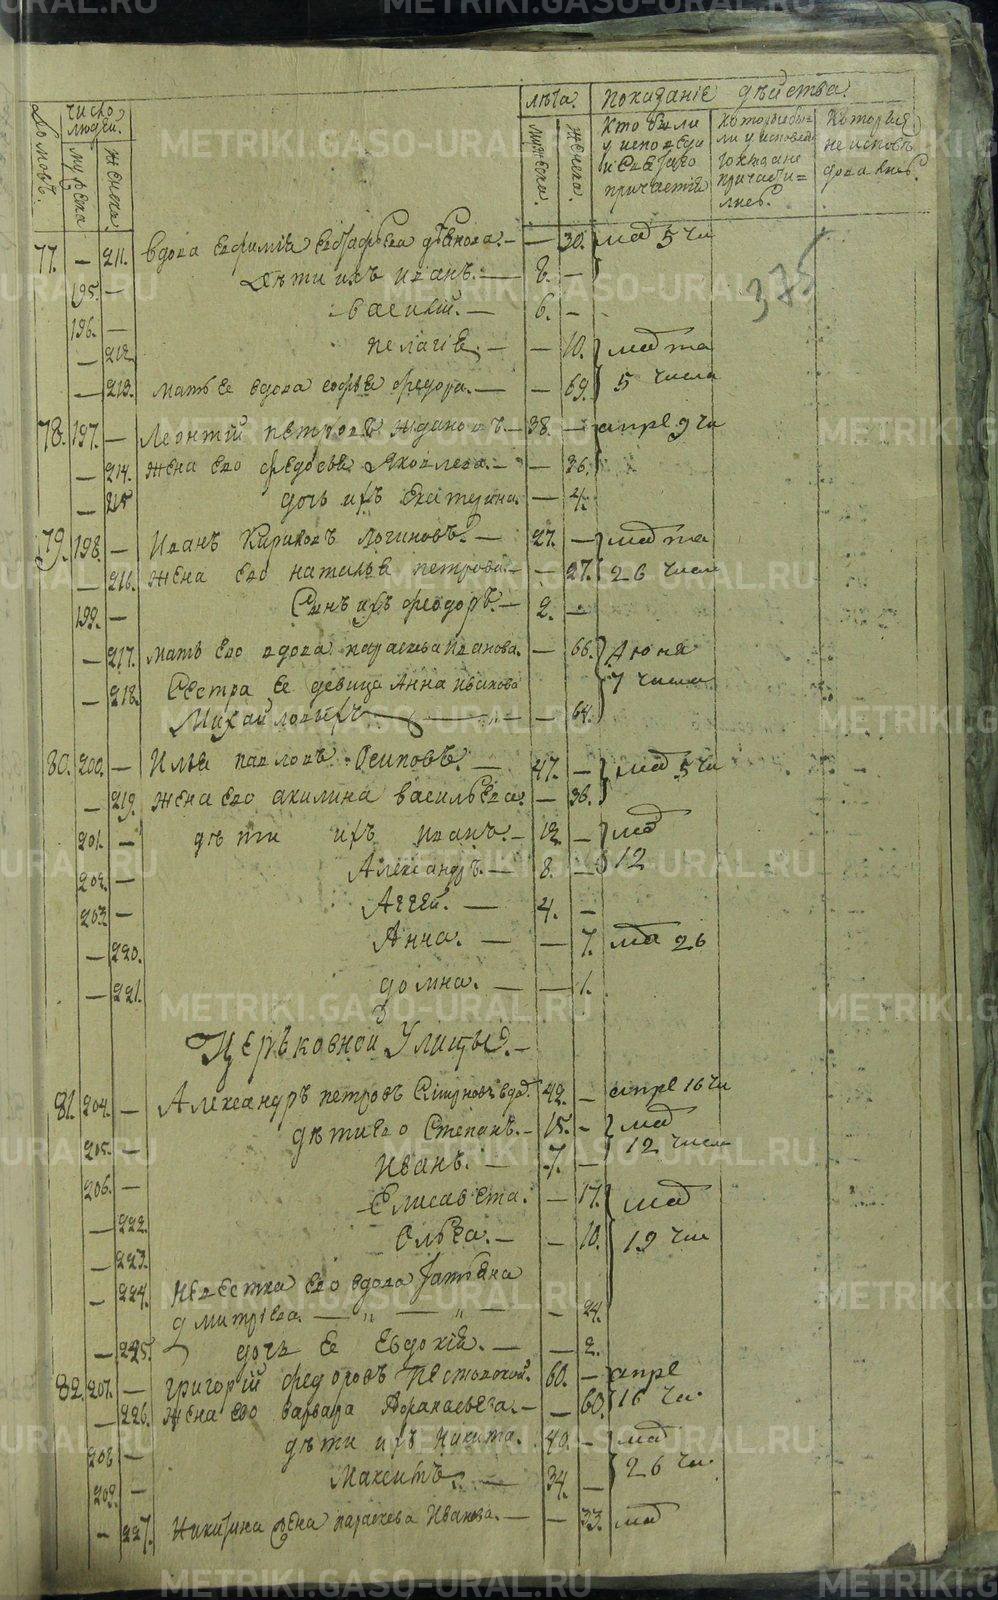 лѣта. Показаніе дѣйства.
Домовъ. число людей. мужска женска. мужска. женска. Кто были у исповѣди и святаго причастія которые бы‐ли у исповѣди токмо а не причасти=лись. Которыя не исповѣдовались.
77. — 211. вдова Евфимія Евстафьева — — 30. маія 5 чи
195. — дѣти ихъ иванъ. — 8. —
196. — василій. — 6. —
— 212 пелагія. — — 10. маія
— 213. мать ее вдова софья федора. — — 69. 5 числа
375
78. 197. — Леонтій петровъ ждановъ — 38. — апре 9 чи
— 214. жена его федосья Яковлева. — — 36.
— 215 дочь ихъ Екатерина. — 4.
79. 198. — Иванъ Кириловъ логиновъ. — 27. — маія
— 216. жена его наталья петрова. — — 27. 26 числа
199. — Сынъ ихъ феодоръ. — 2. —
— 217. мать его вдова параскева Иванова. — 66. Июня
— 218. Сестра ее девица Анна 7 числа
Михайловыхъ — — 64.
80. 200. — Илья павловъ Осиповъ. — 47. — маія 5 чи
— 219. жена его акилина васильева. — 36.
201. — дѣти ихъ иванъ. — 12 — маія
202. — Александръ. — 8. — 12
203 — Аггей. — 4. —
— 220. Анна. — — 7. маія 26
— 221. домна. — — 1.
Церковной Улицы.
81. 204. — Александръ петровъ Смирновъ вдов. 42. — апре 16 чи
205. — дѣти его Степанъ. — 15. — маія
206. — Иванъ. — 7. — 12 числа
— 222. Елисавета. — 17. маія
— 223. Ольга. — — 10. 19 чи
— 224. невестка его вдова Татьяна
дмитріева. — „ — „ — — 24.
— 225. дочь ее Евдокія. — — 2.
82. 207. — григорій федоровъ 60. — апре
— 226. жена его варвара Афанасьева. — — 60. 16 чи
208 — дѣти ихъ Никита. 40. — маія
209. — Максимъ. — 34. — 26 чи
— 227. Никитина жена параскева Иванова. — — 33. маія
METRIKI.GASO-URAL.RU